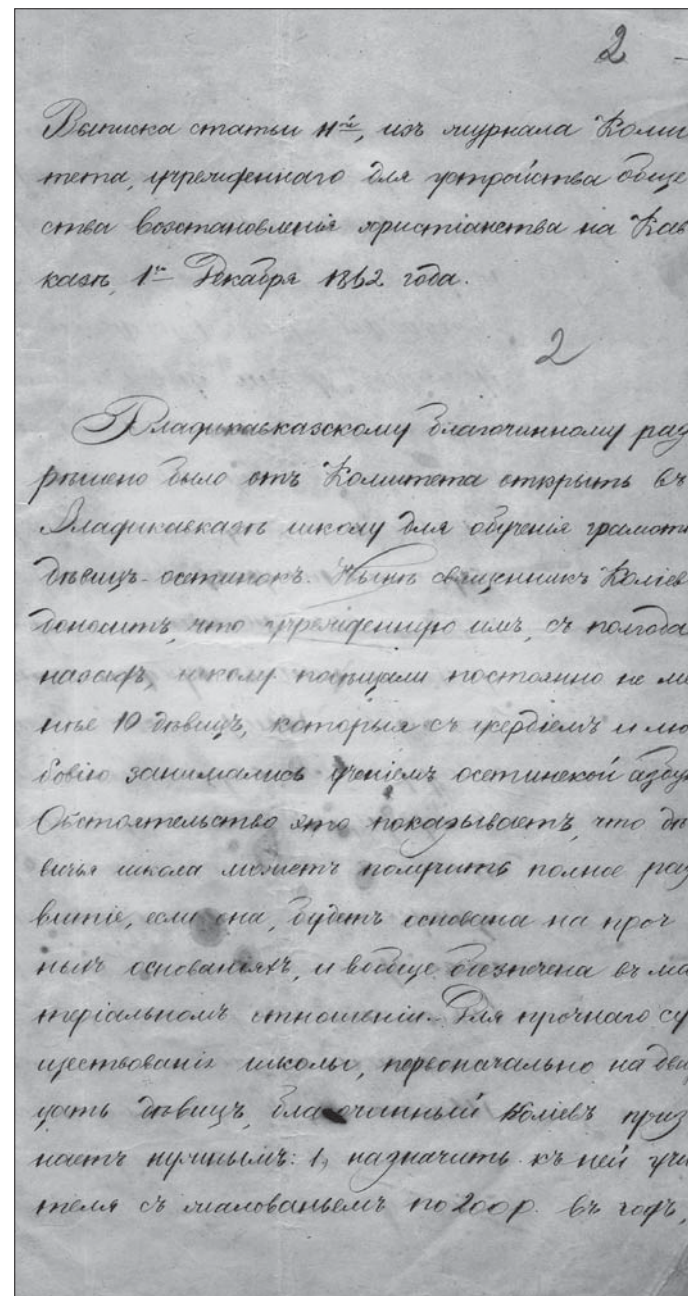 2
Выписка статьи 11й, изъ журнала Коми
тета, учрежденнаго для устройства обще
ства возстановленія христіанства на Кав
казѣ, 1го Декабря 1862 года.
2
Владикавказскому благочинному раз
рѣшено было отъ Комитета открыть въ
Владикавказѣ школу для обученія грамотѣ
дѣвицъ-осетинокъ. Нынѣ священникъ Коліевъ
доноситъ, что учрежденную имъ, съ полгода
назадъ, школу посѣщали постоянно не ме
нѣе 10 дѣвицъ, которыя съ усердіемъ и лю
бовію занимались ученіемъ осетинской азбу
Обстоятельство это показываетъ, что дѣ
вичья школа можетъ получить полное раз
витіе, если она, будетъ основана на проч
ныхъ основаніяхъ, и вообще безпечена въ ма
теріальномъ отношеніи. Для прочнаго су
ществованія школы, первоначально на два
цать дѣвицъ, благочинный Коліевъ приз
наетъ нужнымъ: 1, назначить къ ней учи
теля съ жалованьемъ по 200 р. въ годъ,